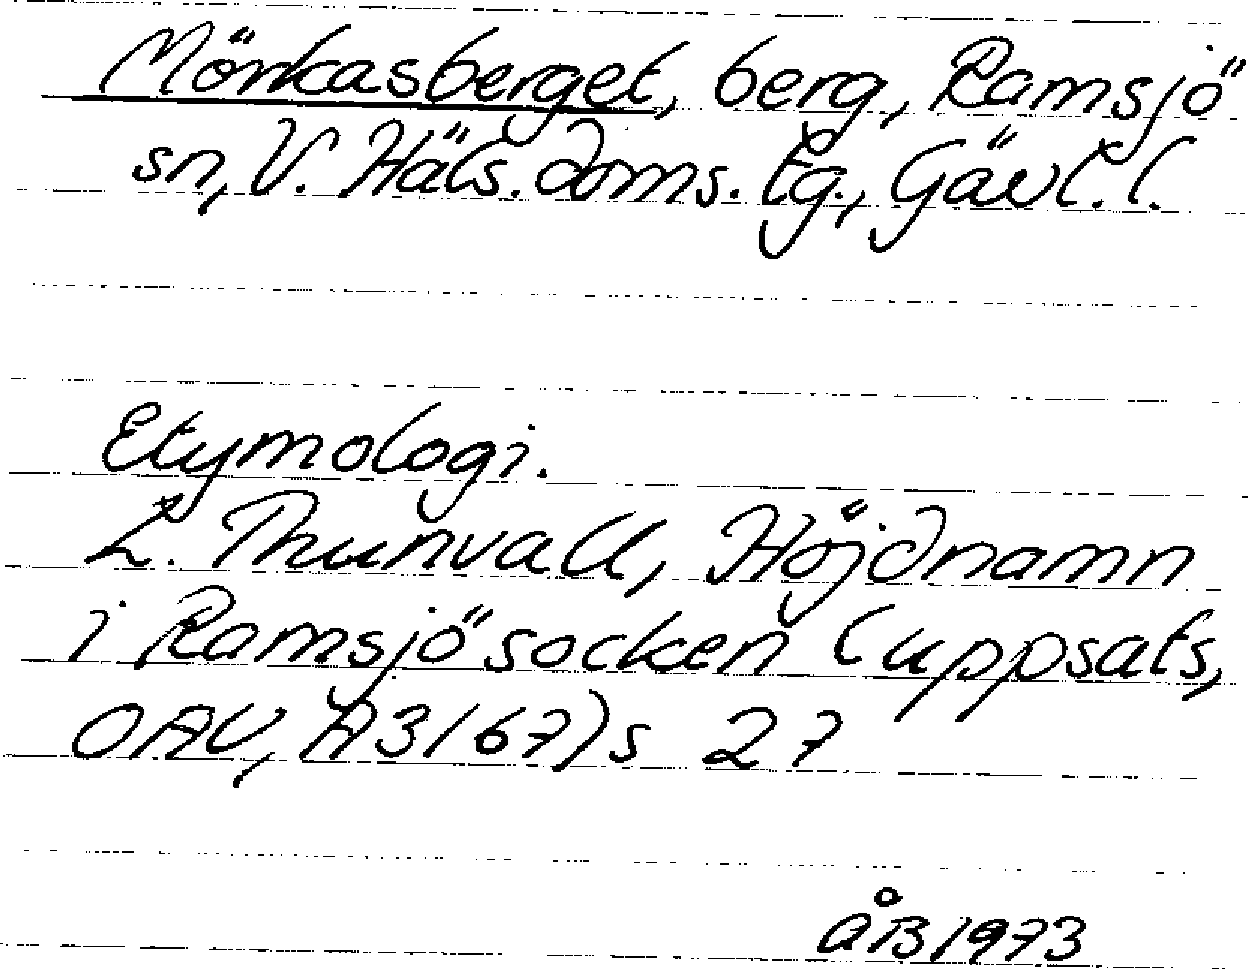 Mörkasberget, berg, Ramsjö
sn, V. Häls. doms. tg., Gävl. l.
Etymologi.
L. Thunvall, Höjdnamn
i Ramsjö socken (uppsats,
OAU, A3167) s 27
ÅB 1973